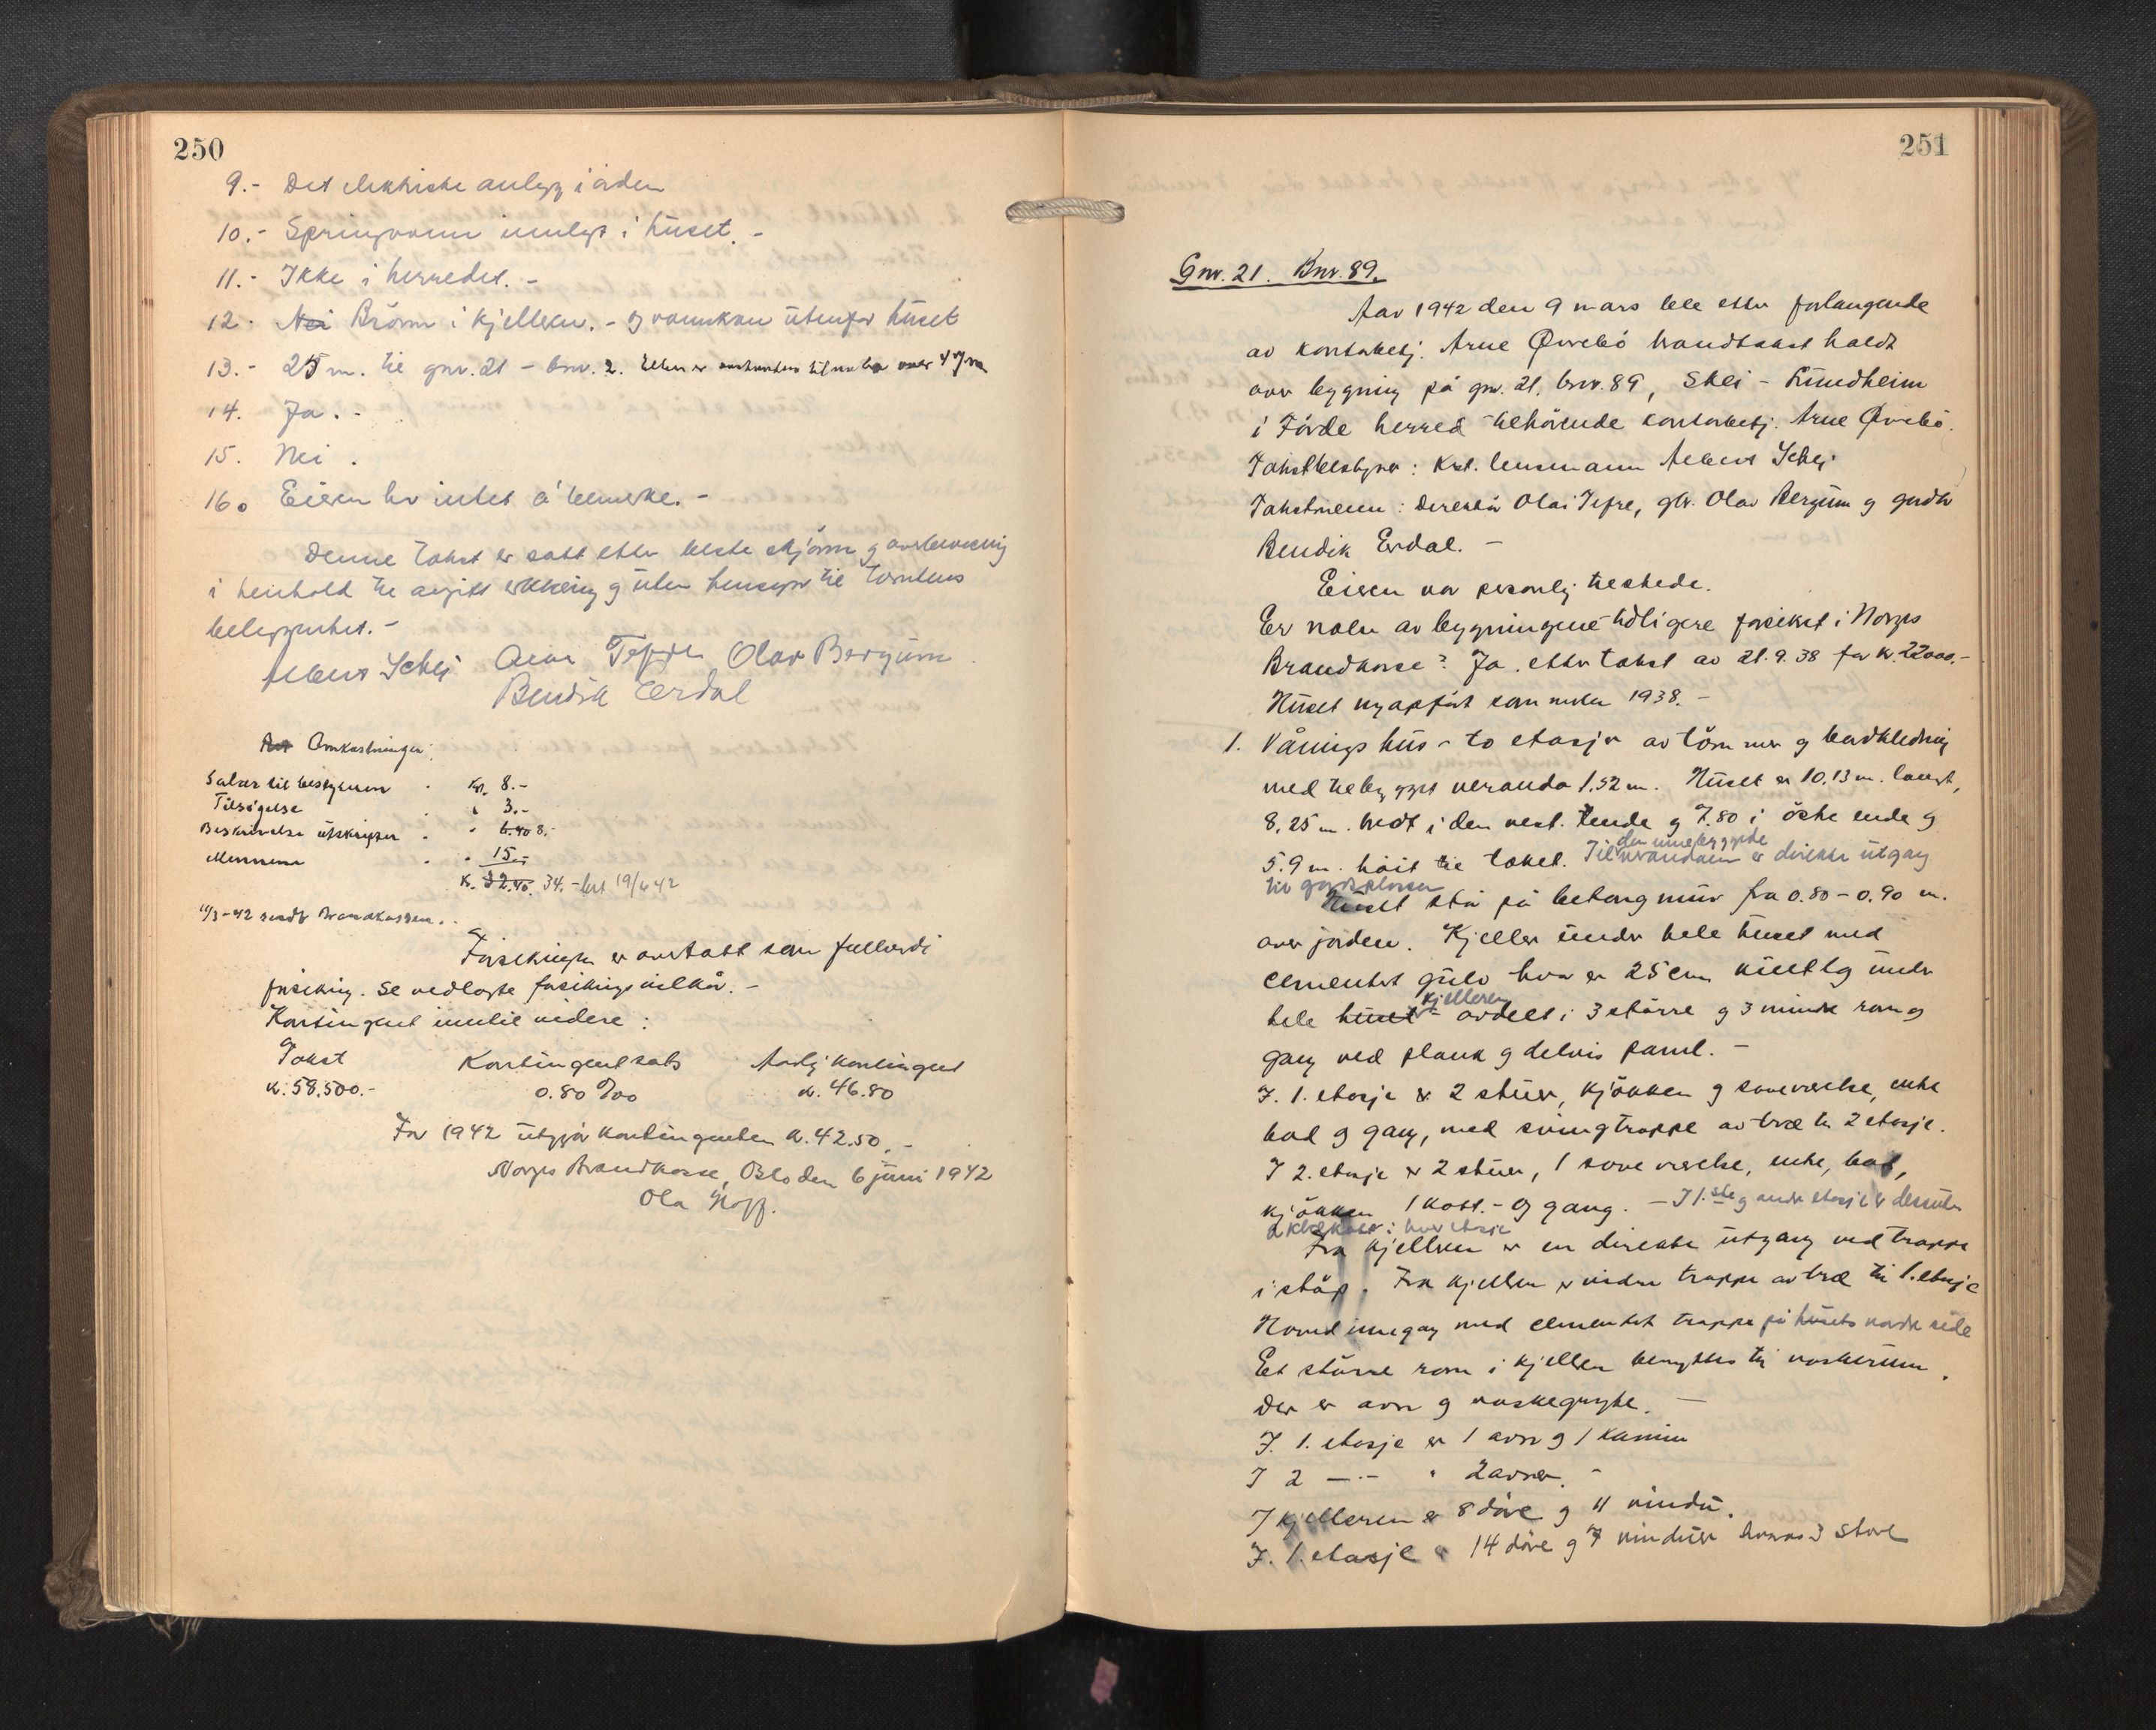 250
9.- Det elektriske anlegg i orden
10.- Springvann innlagt i huset. -
11.- Ikke i herredet. -
12. Nei Brönn i kjelleren. - og vannkran utenfor huset
13.- 25 m. til gnr. 21 - bnr. 2. Ellers er avstanden til nabo over 47 m
14. Ja. -
15. Nei .
16. Eieren har intet å bemerke. -
Denne takst er satt etter beste skjönn og overbevisning
i henhold til avgitt erklæring og uten hensyn til tomtens
beliggenhet. -
Albert Schei Olai Tefre Olav Bergum
Bendik Erdal
Omkostninger:
Salær til bestyreren . Kr. 8.-
Tilsigelse " 3.-
Beskrivelse utskrifter . " 6.40 8.-
Mennene . " 15.-
Kr. 32.40. 34.- bet 19/6 42
11/3-42 sendt Brandkassen. .
Forsikringen er overtatt som fullverdi
forsikring. Se vedlagte forsikringsvilkår. -
Kontingent inntil videre :
Takst Kontingentsats Aarlig kontingent
kr. 58.500.- 0.80 ‰ kr. 46.80
For 1942 utgjör kontingenten kr. 42.50. -
Norges Brandkasse, Oslo den 6 juni 1942
Ola Hoff.
251
Gnr. 21. Bnr. 89.
Aar 1942 den 9 mars ble etter forlangende
av kontorbetj. Arne Övrebö brandtakst holdt
over bygning på gnr. 21, bnr. 89, Skei - Sundheim
i Förde herred tilhörende kontorbetj. Arne Övrebö.
Takstbestyrer: Kst. lensmann Albert Schei
Takstmenn: Direktör Olai Tefre, gbr. Olav Bergum og gardbr
Bendik Erdal. -
Eieren var personlig tilstede.
Er noen av bygningene tidligere forsikret i Norges
Brandkasse? Ja. etter takst av 21.9.38 for kr. 22000.-
Huset nyopfört sommeren 1938. -
1. Våningshus - to etasjer av tömmer og bordkledning
med tilbygget veranda 1.52 m. Huset er 10.13 m. langt,
8,25 m. bredt i den vest. ende og 7.80 i östre ende og
den innebygde
5.9 m. höit til taket. Til verandaen er direkte utgang
til gardsplassen
Huset står på betong mur fra 0.80 - 0.90 m.
over jorden. Kjeller under hele huset med
cementert gulv hvor er 25 cm kultlag under
kjelleren
hele huset - avdelt i 3 större og 3 mindre rom og
gang ved plank og delvis panel. -
I. 1. etasje er 2 stuer, kjökken og soveværelse, entre
bad og gang, med svingtrappe av træ til 2 etasje.
I 2. etasje er 2 stuer, 1 soveværelse, entre, bad,
kjökken 1 kott. - og gang. - I 1.ste og andre etasje er dessuten
2 kleskott i hver etasje
Fra kjelleren er en direkte utgang ved trappe
i stöp. Fra kjelleren er videre trappe av træ til 1. etasje
Hovedinngang med cementert trappe på husets nordre side
Et större rom i kjelleren benyttes til vaskerum.
Der er ovn og vaskegryte. -
I. 1. etasje er 1 ovn og 1 kamin
I 2 -.- " 2 ovner. -
I kjelleren er 8 döre og 11 vindu.
I. 1. etasje er 14 döre og 7 vinduer hvorav 3 store